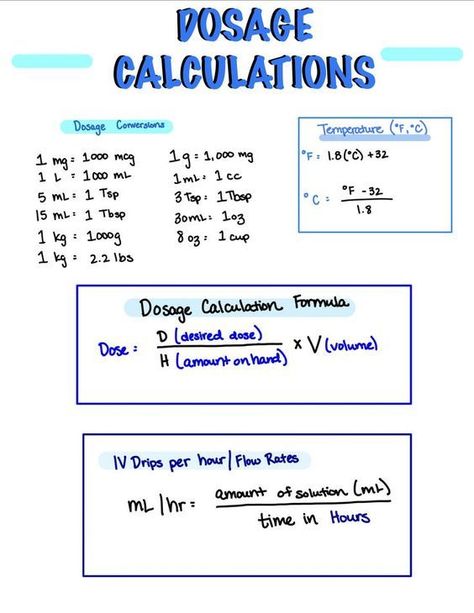 DOSAGE
CALCULATIONS
Dosage Conversions
1 mg = 1000 mcg
1 L = 1000 mL
5 mL = 1 Tsp
15 mL = 1 Tbsp
1 kg = 1000g
1 kg = 2.2 lbs
1g = 1,000 mg
1mL = 1 cc
3 Tsp = 1 Tbsp
30mL = 1oz
8 oz = 1 cup
Temperature (°F, °C)
°F = 1.8(°C) +32
°C = °F -32
1.8
Dosage Calculation Formula
Dose = D (desired dose)
H (amount on hand) x V (volume)
IV Drips per hour/Flow Rates
mL/hr = amount of solution (mL)
time in Hours